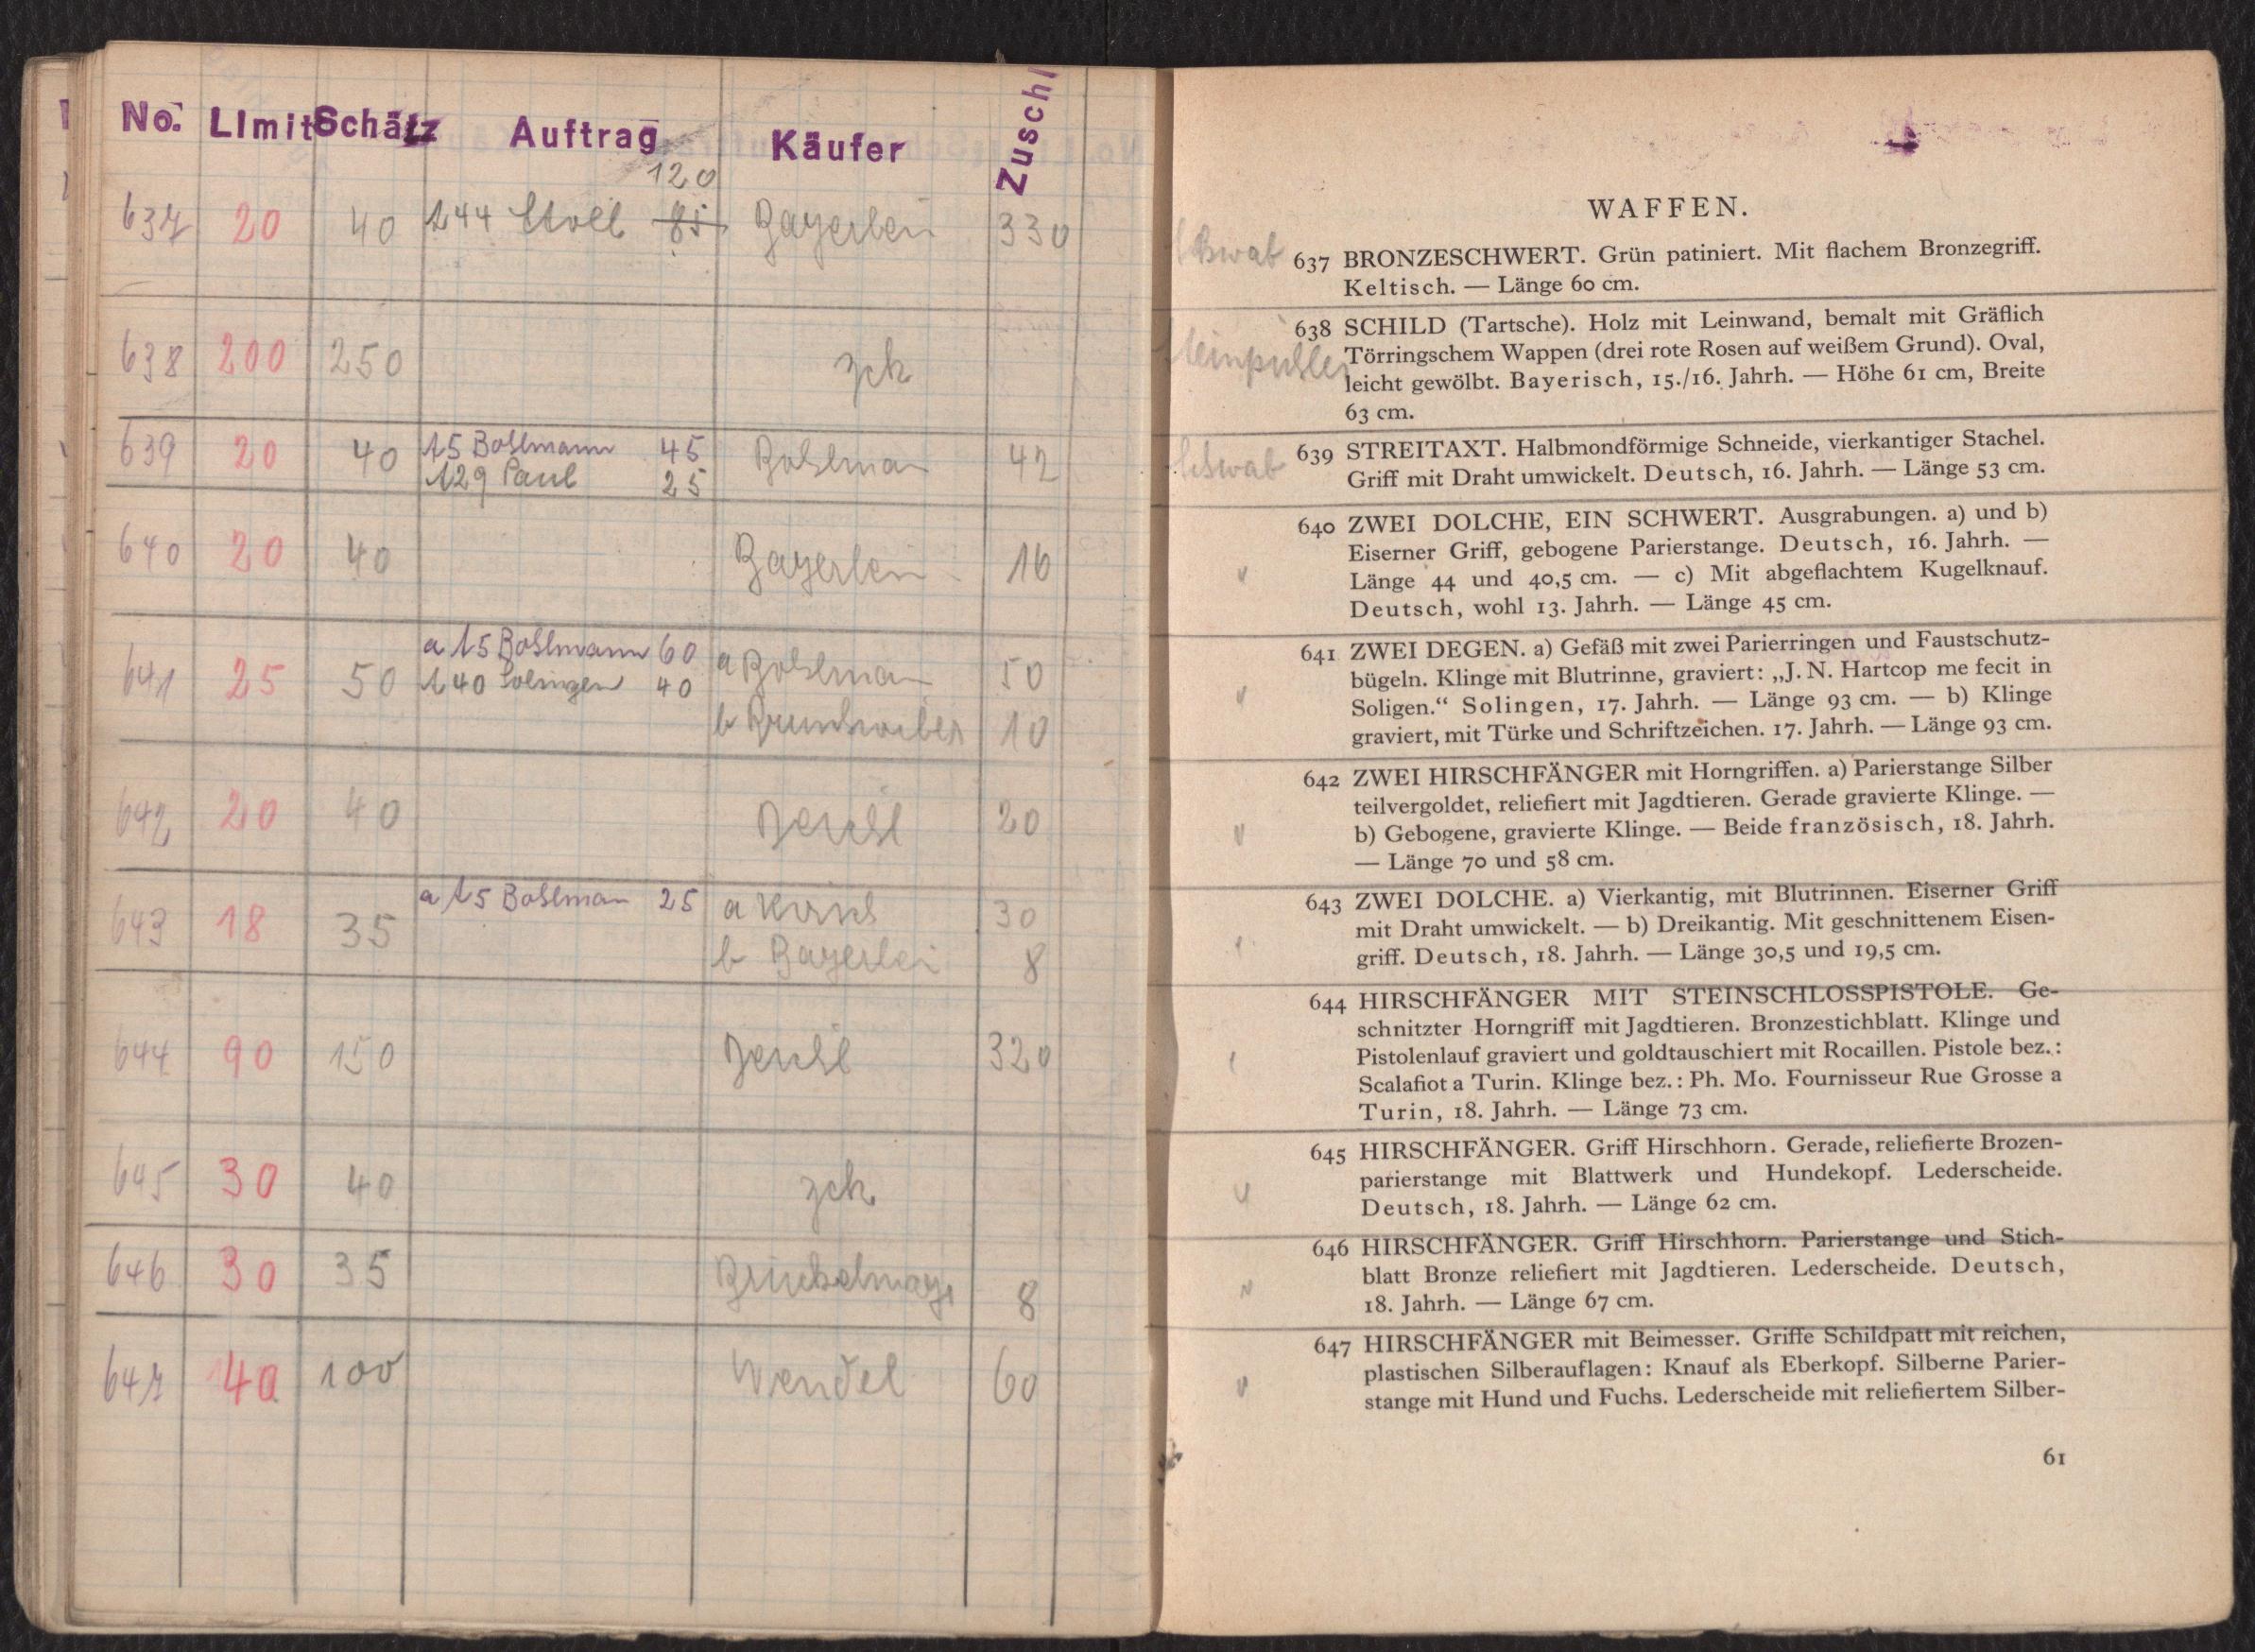 No. Limit Schätz Auftrag Käufer Zuschl
120
637 20 40 244 Stoll 85 Bayerlein 330
638 200 250 zck
639 20 40 15 Bohlmann 45 Bohlman 42
129 Paul 25
640 20 40 Bayerlein 16
a 15 Bohlmann 60
641 25 50 140 Solingen 40 a Bohlman 50
b 10
642 20 40 20
a 15 Bohlman 25
643 18 35 a 30
b Bayerlei 8
644 90 150 320
645 30 40 zck
646 30 35 8
647 40 100 Wendel 60
WAFFEN.
637 BRONZESCHWERT. Grün patiniert. Mit flachem Bronzegriff.
Keltisch. — Länge 60 cm.
638 SCHILD (Tartsche). Holz mit Leinwand, bemalt mit Gräflich
Törringschem Wappen (drei rote Rosen auf weißem Grund). Oval,
leicht gewölbt. Bayerisch, 15./16. Jahrh. — Höhe 61 cm, Breite
63 cm.
639 STREITAXT. Halbmondförmige Schneide, vierkantiger Stachel.
Griff mit Draht umwickelt. Deutsch, 16. Jahrh. — Länge 53 cm.
640 ZWEI DOLCHE, EIN SCHWERT. Ausgrabungen. a) und b)
Eiserner Griff, gebogene Parierstange. Deutsch, 16. Jahrh. —
Länge 44 und 40,5 cm. — c) Mit abgeflachtem Kugelknauf.
Deutsch, wohl 13. Jahrh. — Länge 45 cm.
641 ZWEI DEGEN. a) Gefäß mit zwei Parierringen und Faustschutz-
bügeln. Klinge mit Blutrinne, graviert: „J. N. Hartcop me fecit in
Soligen.“ Solingen, 17. Jahrh. — Länge 93 cm. — b) Klinge
graviert, mit Türke und Schriftzeichen. 17. Jahrh. — Länge 93 cm.
642 ZWEI HIRSCHFÄNGER mit Horngriffen. a) Parierstange Silber
teilvergoldet, reliefiert mit Jagdtieren. Gerade gravierte Klinge. —
b) Gebogene, gravierte Klinge. — Beide französisch, 18. Jahrh.
— Länge 70 und 58 cm.
643 ZWEI DOLCHE. a) Vierkantig, mit Blutrinnen. Eiserner Griff
mit Draht umwickelt. — b) Dreikantig. Mit geschnittenem Eisen-
griff. Deutsch, 18. Jahrh. — Länge 30,5 und 19,5 cm.
644 HIRSCHFÄNGER MIT STEINSCHLOSSPISTOLE. Ge-
schnitzter Horngriff mit Jagdtieren. Bronzestichblatt. Klinge und
Pistolenlauf graviert und goldtauschiert mit Rocaillen. Pistole bez.:
Scalafiot a Turin. Klinge bez.: Ph. Mo. Fournisseur Rue Grosse a
Turin, 18. Jahrh. — Länge 73 cm.
645 HIRSCHFÄNGER. Griff Hirschhorn. Gerade, reliefierte Brozen-
parierstange mit Blattwerk und Hundekopf. Lederscheide.
Deutsch, 18. Jahrh. — Länge 62 cm.
646 HIRSCHFÄNGER. Griff Hirschhorn. Parierstange und Stich-
blatt Bronze reliefiert mit Jagdtieren. Lederscheide. Deutsch,
18. Jahrh. — Länge 67 cm.
647 HIRSCHFÄNGER mit Beimesser. Griffe Schildpatt mit reichen,
plastischen Silberauflagen: Knauf als Eberkopf. Silberne Parier-
stange mit Hund und Fuchs. Lederscheide mit reliefiertem Silber-
61